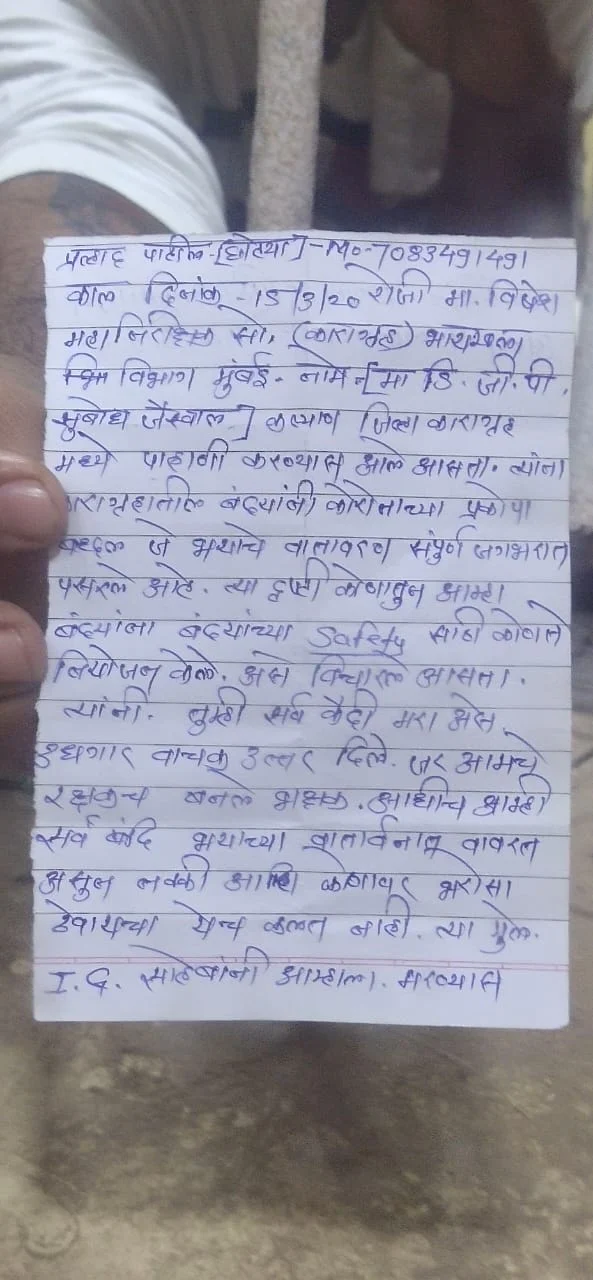 प्रल्हाद पाटील-[छोट्या]-Mo-7083491491
काल दिनांक -15/3/20 रोजी मा. विशेष
महानिरीक्षक सो, (कारागृह) भायखळा
विभाग मुंबई- नामे- [मा डि. जी. पी.
सुबोध जैस्वाल] कल्याण जिल्हा कारागृह
मध्ये पाहाणी करण्यास आले आसता. त्यांना
कारागृहातील बंद्यांनी कोरोनाच्या प्रकोपा
बद्दल जे भयाचे वातावरण संपुर्ण जगभरात
पसरले आहे. त्या दृष्टी कोणातुन आम्हा
बंद्यांना बंद्यांच्या Safety साठी कोणते
नियोजन केले. असे विचारले आसता.
त्यांनी. तुम्ही सर्व कैदी मरा असे.
उधगार वाचक उत्तर दिले. जर आमचे
रक्षकच बनले भक्षक. आधीच आम्ही
सर्व बंदि भयाच्या वातार्वनात वावरत
असुन नक्की आम्हि कोणावर भरोसा
ठेवायचा येच कलत नाही. त्या मुळे.
I. G. साहेबांनी आम्हाला. मरण्यास